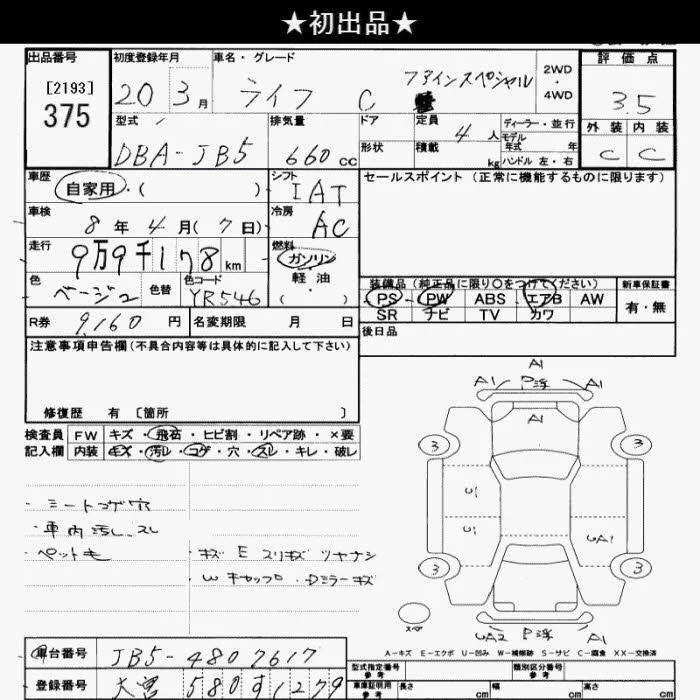 ★初出品★
出品番号
[2193]
375
初度登録年月
20 3月
車名・グレード
ライフ C ファインスペシャル
2WD
・
4WD
評価点
3.5
外装 内装
C C
型式
DBA-JB5
排気量
660cc
ドア
形状
定員 4人
積載 kg
ディーラー・並行
モデル
年式 年
ハンドル 左・右
車歴
自家用・( )
シフト
IAT
セールスポイント(正常に機能するものに限ります)
車検
8年4月(7日)
冷房
AC
走行
9万9千178km
燃料
ガソリン
軽油
( ・ )
色
ベージュ
色替
色コード
YR546
装備品(純正品に限り○をつけてください)
PS PW ABS エアB AW
SR ナビ TV カワ
新車保証書
有・無
R券 9,160円
名変期限 月 日
後日品
注意事項申告欄(不具合内容等は具体的に記入して下さい)
修復歴 有 [箇所 ]
検査員 FW キズ・飛石・ヒビ割・リペア跡・×要
記入欄 内装 キズ・汚レ・コゲ・穴・スレ・キレ・破レ
・シートコゲ穴
・車内汚レ、スレ
・ペット毛
・キズ E スリキズ ツヤナシ
・Wキャップ・Dミラーキズ
A1
A1 P浮 A1
A1
3 3
U1
U1 UA1
3 3
スペア
UA2 P浮 A1
A-キズ E-エクボ U-凹み W-補修跡 S-サビ C-腐食 XX-交換済
車台番号 JB5-4807617
登録番号 580す1279
型式指定番号
参考
類別区分番号
参考
車庫証明用
参考
長さ cm
幅 cm
高さ cm